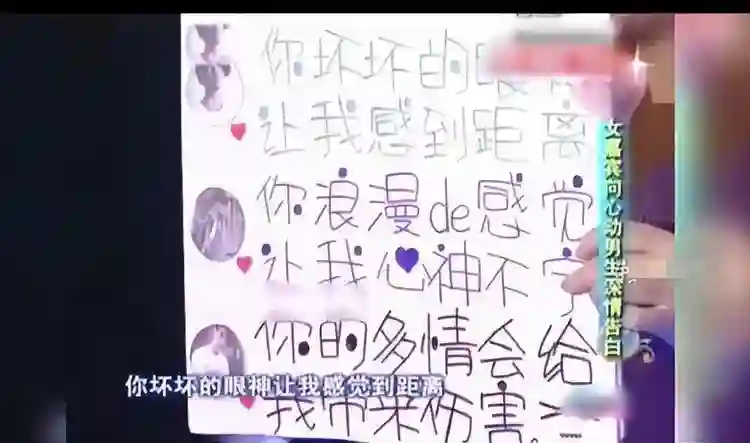 你坏坏的眼
让我感到距离
你浪漫de感觉
让我心神不宁
你的多情会给
我带来伤害。
你坏坏的眼神让我感觉到距离
女嘉宾向心动男生深情告白